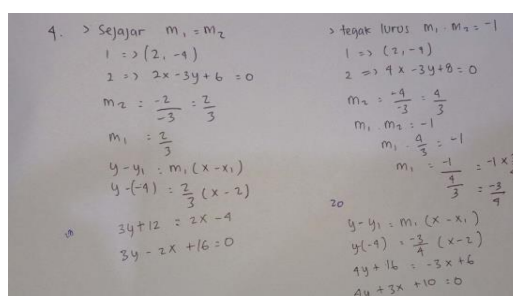 4. > Sejajar m₁ = m₂
1 => (2, -4)
2 => 2x - 3y + 6 = 0
m₂ = -2/-3 = 2/3
m₁ = 2/3
y - y₁ = m₁ (x - x₁)
y - (-4) = 2/3 (x - 2)
3y + 12 = 2x - 4
3y - 2x + 16 = 0
> tegak lurus m₁ . m₂ = -1
1 => (2, -4)
2 => 4x - 3y + 8 = 0
m₂ = -4/-3 = 4/3
m₁ . m₂ = -1
m₁ . 4/3 = -1
m₁ = -1/(4/3) = -1 ×
= -3/4
20
y - y₁ = m₁ (x - x₁)
y(-4) = -3/4 (x - 2)
4y + 16 = -3x + 6
4y + 3x + 10 = 0